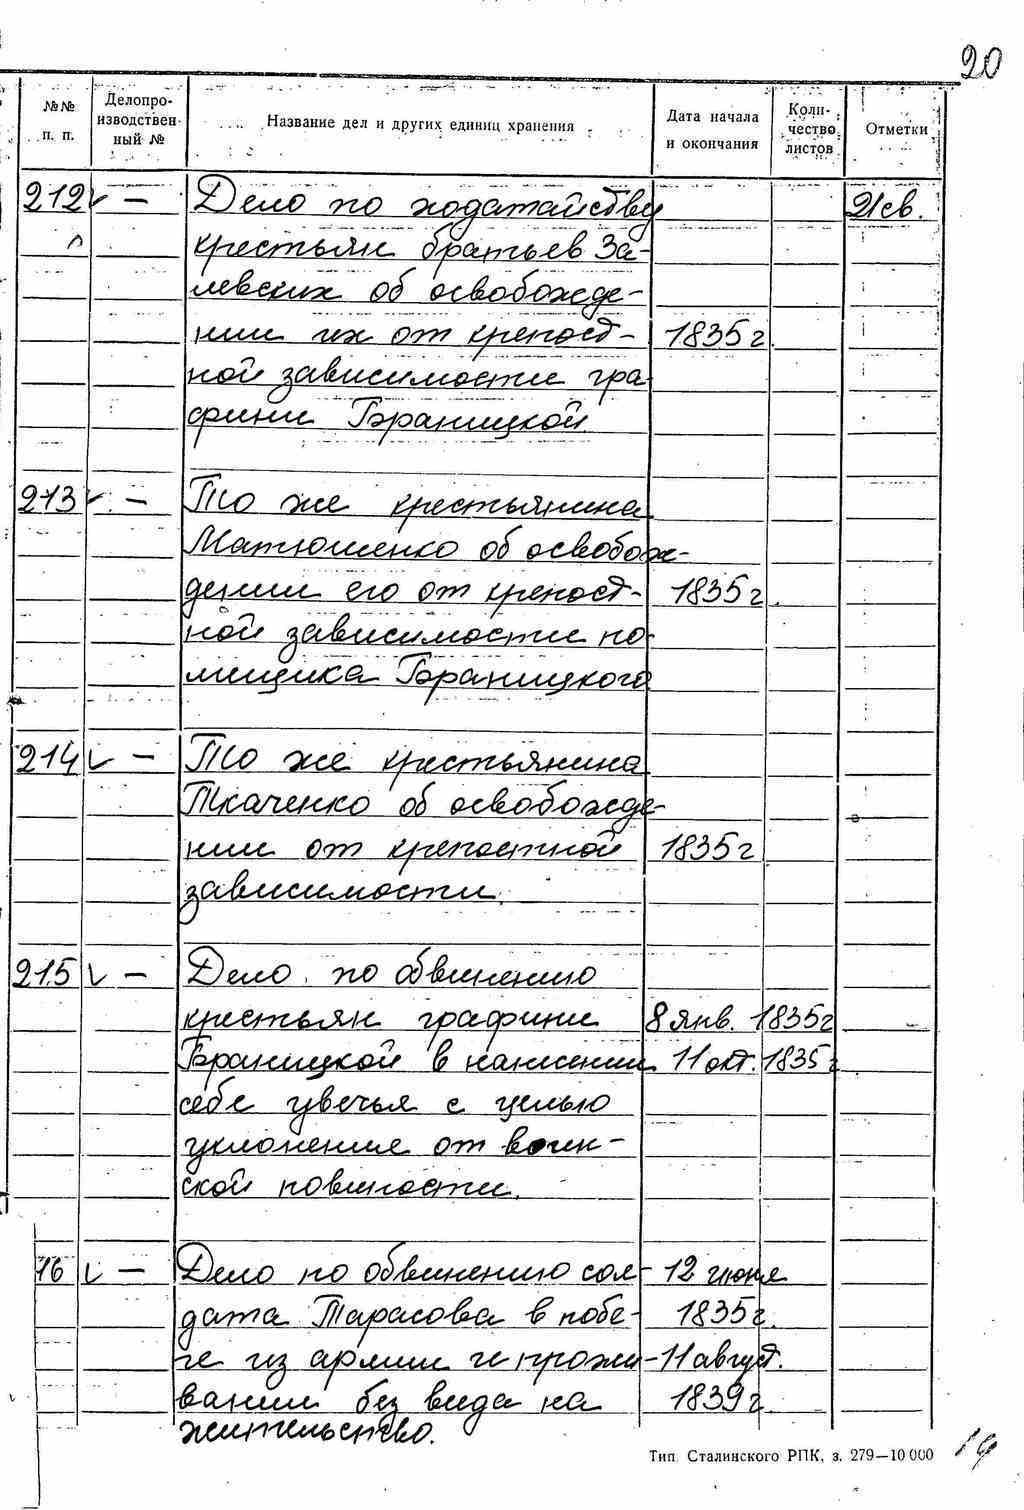 20
№№ п. п.
Делопро-изводствен-ный №
Название дел и других единиц хранения
Дата начала и окончания
Коли-чество листов
Отметки
212 — Дело по ходатайству 21св.
крестьян братьев За-
левских об освобожде-
нии их от крепост- 1835 г.
ной зависимости гра-
фини Браницкой.
213 — То же крестьянина
Матюшенко об освобож-
дении его от крепост- 1835 г.
ной зависимости по-
мещика Браницкого
214 — То же крестьянина
Ткаченко об освобожде-
нии от крепостной 1835 г
зависимости.
215 — Дело по обвинению
крестьян графини 8 янв. 1835 г
Браницкой в нанесении 11 окт. 1835 г
себе увечья с целью
уклонения от воин-
ской повинности.
16 — Дело по обвинению сол- 12 июня
дата Тарасова в побе- 1835 г.
ге из армии и прожи- 11 август.
вании без вида на 1839 г
жительство.
Тип. Сталинского РПК, з. 279—10 000
19